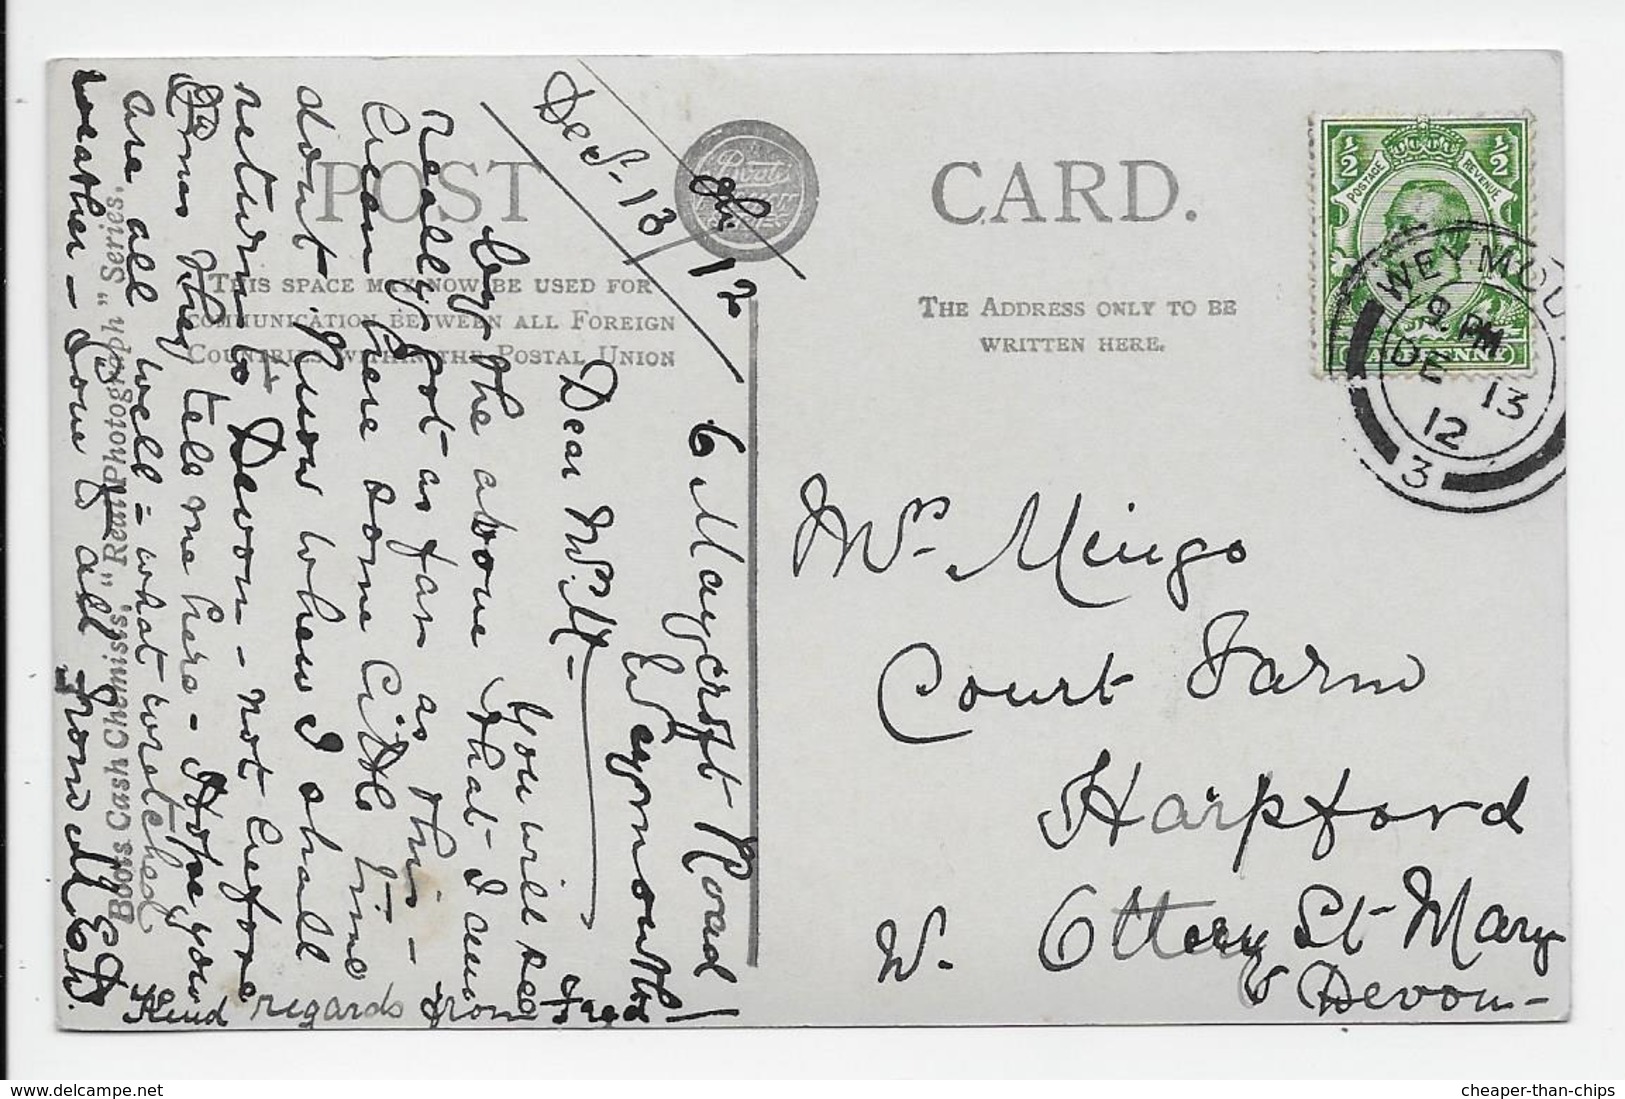 POST CARD.
THIS SPACE MAY NOW BE USED FOR
COMMUNICATION BETWEEN ALL FOREIGN
COUNTRIES WITHIN THE POSTAL UNION
THE ADDRESS ONLY TO BE
WRITTEN HERE.
Boots Cash Chemists "Real Photograph" Series.
POSTAGE REVENUE
1/2 1/2
HALFPENNY
WEYMOU
9 PM
DE 13
12
3
Dec. 13 12
6 Maycroft Road
Weymouth
Dear
You will see
by the above that I am
really got as far as this -
been here some little time
dont know when I shall
return to Devon - not before
Xmas they tell me here - Hope you
are all well - what wretched
weather - love to all from M E
Kind regards from Fred
Mrs Mingo
Court Farm
Harpford
Ottery St Mary
Devon -
cheaper-than-chips